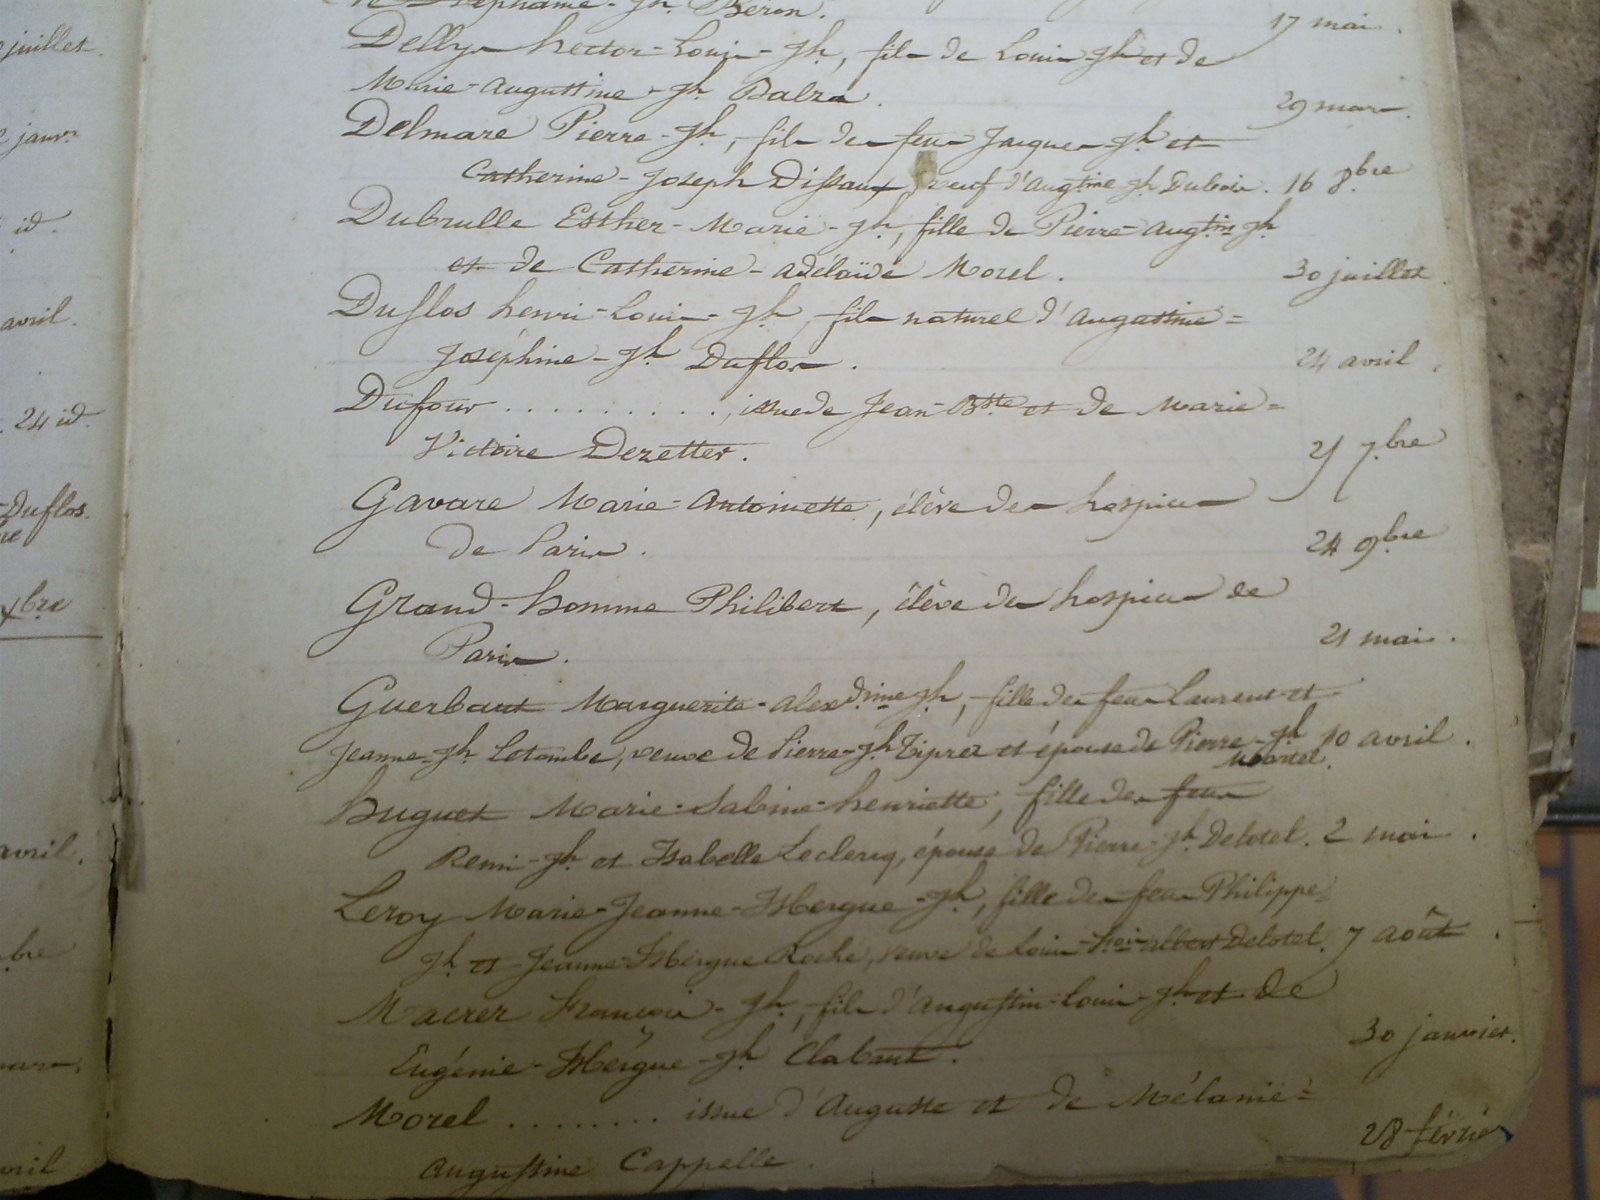 juillet.
janvr.
id.
avril.
24 id.
Duflos.
bre
avril.
bre
mars.
avril
Stéphanie - Jh Beron. 17 mai.
Delbyr hector - Louis - Jh, fils de Louis Jh et de
Marie - Augustine - Jh Balza. 29 mars.
Delmare Pierre - Jh, fils de feu Jacques Jh et
Catherine - Joseph Dissaux, veuf d'Augtine Jh Dubois. 16 8bre
Dubrulle Esther - Marie - Jh, fille de Pierre Augtin Jh
et de Catherine - adélaïde Morel. 30 juillet.
Duflos henri - Louis - Jh, fils naturel d'Augustine =
Joséphine - Jh Duflos. 24 avril.
Dufour . . . . . . . . . . , issue de Jean - Bste et de Marie =
Victoire Dezetter. 25 7bre
Gavare Marie - Antoinette, élève des hospices
de Paris. 24 9bre
Grand - homme Philibert, élève des hospices de
Paris. 21 mai.
Guerbaut Marguerite - Alexdrine Jh, fille de feus Laurent et
Jeanne - Jh Letombe, veuve de Pierre - Jh Tiprez et épouse de Pierre - Jh 10 avril.
Martel.
huguet Marie - Sabine - henriette, fille de feus
Remi - Jh et Isabelle Leclercq, épouse de Pierre - Jh Delotel. 2 mai.
Leroy Marie - Jeanne - Isbergue - Jh, fille de feus Philippe =
Jh et Jeanne Isbergue Roche, veuve de Louis - foir albert Delotel. 7 août.
Macrez François - Jh, fils d'Augustin - Louis - Jh et de
Eugénie - Isbergue - Jh Clabaut. 30 janvier.
Morel . . . . . . . . issue d'Auguste et de Mélanie =
Augustine Cappelle. 28 février